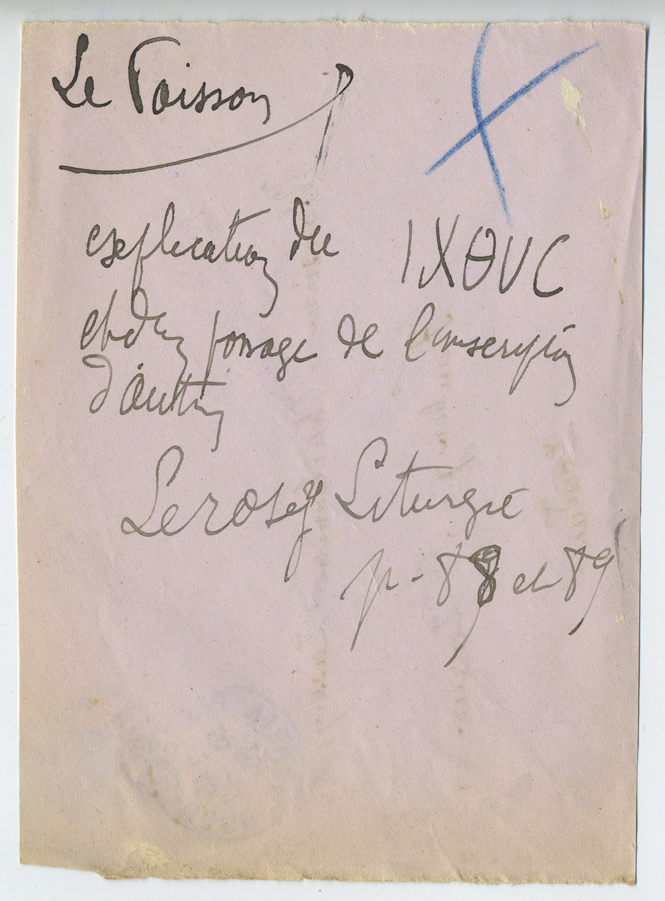 Le Poisson
explication du IXΘUC
et du passage de l'inscription
d'Autun
Lerosey Liturgie
p. 88 et 89